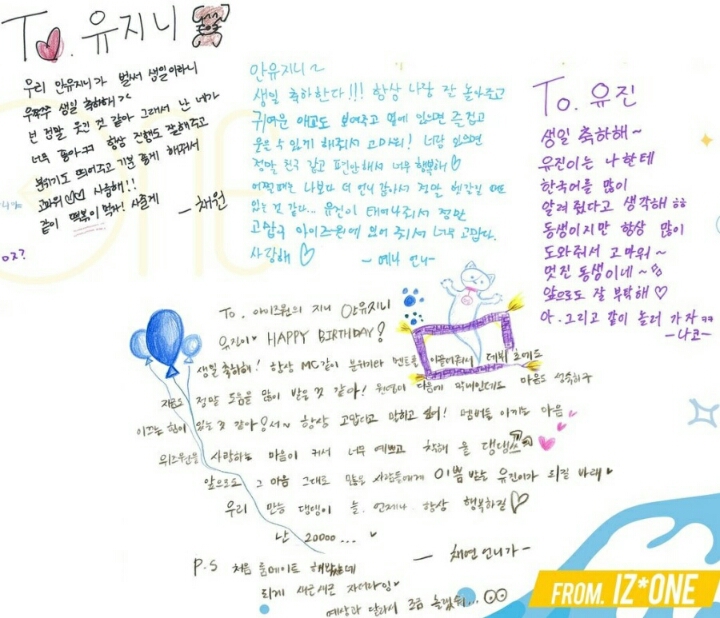 To. 유지니
우리 안유지니가 벌써 생일이라니
우쭈쭈 생일 축하해><
넌 정말 웃긴 것 같아 그래서 난 네가
너무 좋아ㅋㅋ 항상 진행도 잘해주고
분위기도 띄어주고 기분 좋게 해줘서
고마워♡ 사랑해!!
같이 떡볶이 먹자! 사줄게
-채원
안유지니~
생일 축하한다!!! 항상 나랑 잘 놀아주고
귀여운 애교도 보여주고 옆에 있으면 즐겁고
웃을 수 있게 해줘서 고마워! 너랑 있으면
정말 친구 같고 편안해서 너무 행복해♡
어쩔때는 나보다 더 언니 같아서 정말 헷갈릴 때도
있는 것 같다... 유진이 태어나줘서 정말
고맙구 아이즈원에 있어 줘서 너무 고맙다.
사랑해♡
-예나 언니-
To. 유진
생일 축하해~
유진이는 나한테
한국어를 많이
알려 줬다고 생각해 ㅎㅎ
동생이지만 항상 많이
도와줘서 고마워~
멋진 동생이네~
앞으로도 잘 부탁해♡
아. 그리고 같이 놀러 가자 ㅋㅋ
-나코-
To. 아이즈원의 지니 안유지니
유진이♥ HAPPY BIRTHDAY!
생일 축하해! 항상 MC같이 분위기랑 멘트를 이끌어줘서 데뷔 초때도
지금도 정말 도움을 많이 받은 것 같아! 원영이 다음에 막내인데도 마음도 성숙하구
이끄는 힘이 있는 것 같아! 항상 고맙다고 말하고 싶어! 멤버들 아끼는 마음
위즈원을 사랑하는 마음이 커서 너무 예쁘고 착해 울 댕댕
앞으로도 그 마음 그대로 많은 사람들에게 이쁨 받는 유진이가 되길 바래♥
우리 만능 댕댕이 늘, 언제나 항상 행복하길♡
난 20000...♥
- 채연 언니가-
P.S 처음 룸메이트 해봤는데
되게 새근새근 자더라잉♥
예상과 달라서 조금 놀랬쉬...
FROM. IZ*ONE